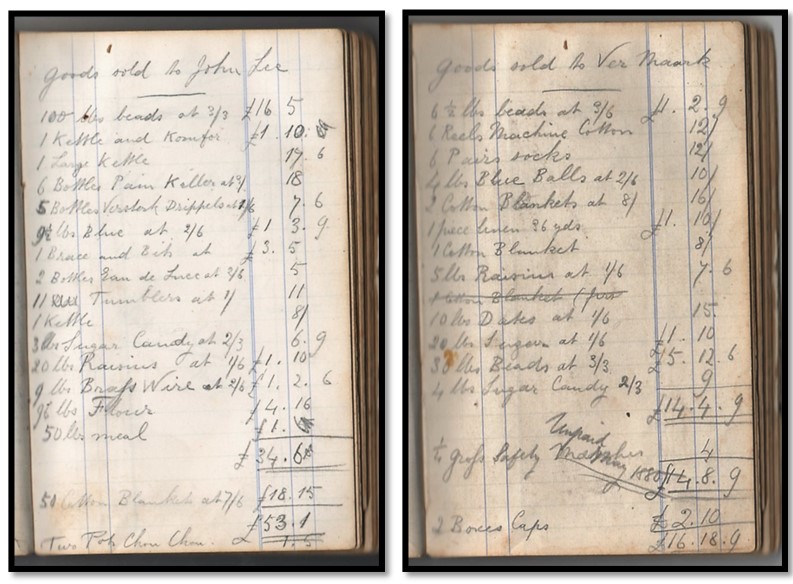 Goods sold to John Lee
100 lbs beads at 3/3 £16 5
1 Kettle and Komfor £1. 10.
1 Large Kettle 17. 6
6 Bottles Pain Killer at 3/ 18
5 Bottles Versterk Drippels at 1/6 7. 6
9½ lbs Blue at 2/6 £1 3. 9
1 Brace and Bits at £3. 5
2 Bottles Eau de Luce at 2/6 5
11 Tumblers at 1/ 11
1 Kettle 8/
3 lbs Sugar Candy at 2/3 6. 9
20 lbs Raisins at 1/6 £1. 10
9 lbs Brass Wire at 2/6 £1. 2. 6
lbs Flour £4. 16
50 lbs meal £1.
£34. 6
50 Cotton Blankets at 7/6 £18. 15
£53. 1
Two Pots Chou Chou. 1. 5
Goods sold to Ver Maark
6 ½ lbs beads at 3/6 £1. 2. 9
6 Reels Machine Cotton 12/
6 Pairs socks 12/
4 lbs Blue Balls at 2/6 10/
2 Cotton Blankets at 8/ 16/
1 piece linen 36 yds £1. 10/
1 Cotton Blanket 8/
5 lbs Raisins at 1/6 7. 6
Blanket
10 lbs Dates at 1/6 15.
20 lbs Sugar at 1/6 £1. 10
30 lbs Beads at 3/3 £5. 12. 6
4 lbs Sugar Candy 2/3 9
£14. 4. 9
Unpaid
¼ gross Safety Matches 4
May 1880 £14. 8. 9
2 Boxes Caps £2. 10
£16. 18. 9